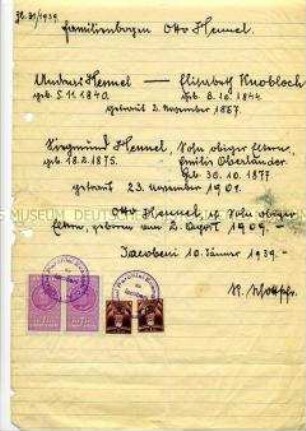 Zl. 31/1939.
Familienbogen Otto Hennel.
Andreas Hennel — Elisabeth Knobloch
geb. 5.11.1840. geb. 8.10.1844
getraut 2. November 1867.
Siegmund Hennel, Sohn obiger Eltern.
geb. 18.2.1875. Emilie Oberländer
geb. 30.10.1877
getraut 23. November 1901.
Otto Hennel, Sohn obiger
Eltern, geboren am 2. August 1909.—
Jacobeni 10. Jänner 1939.—